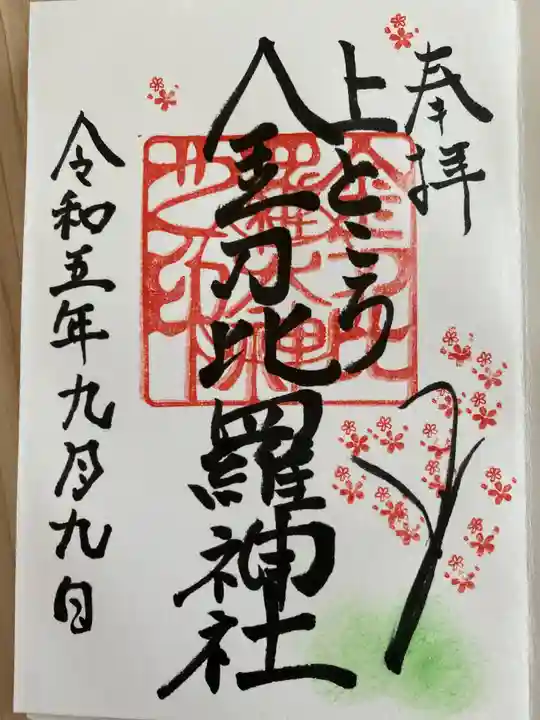 奉拝
上ところ
金刀比羅神社
令和五年九月九日